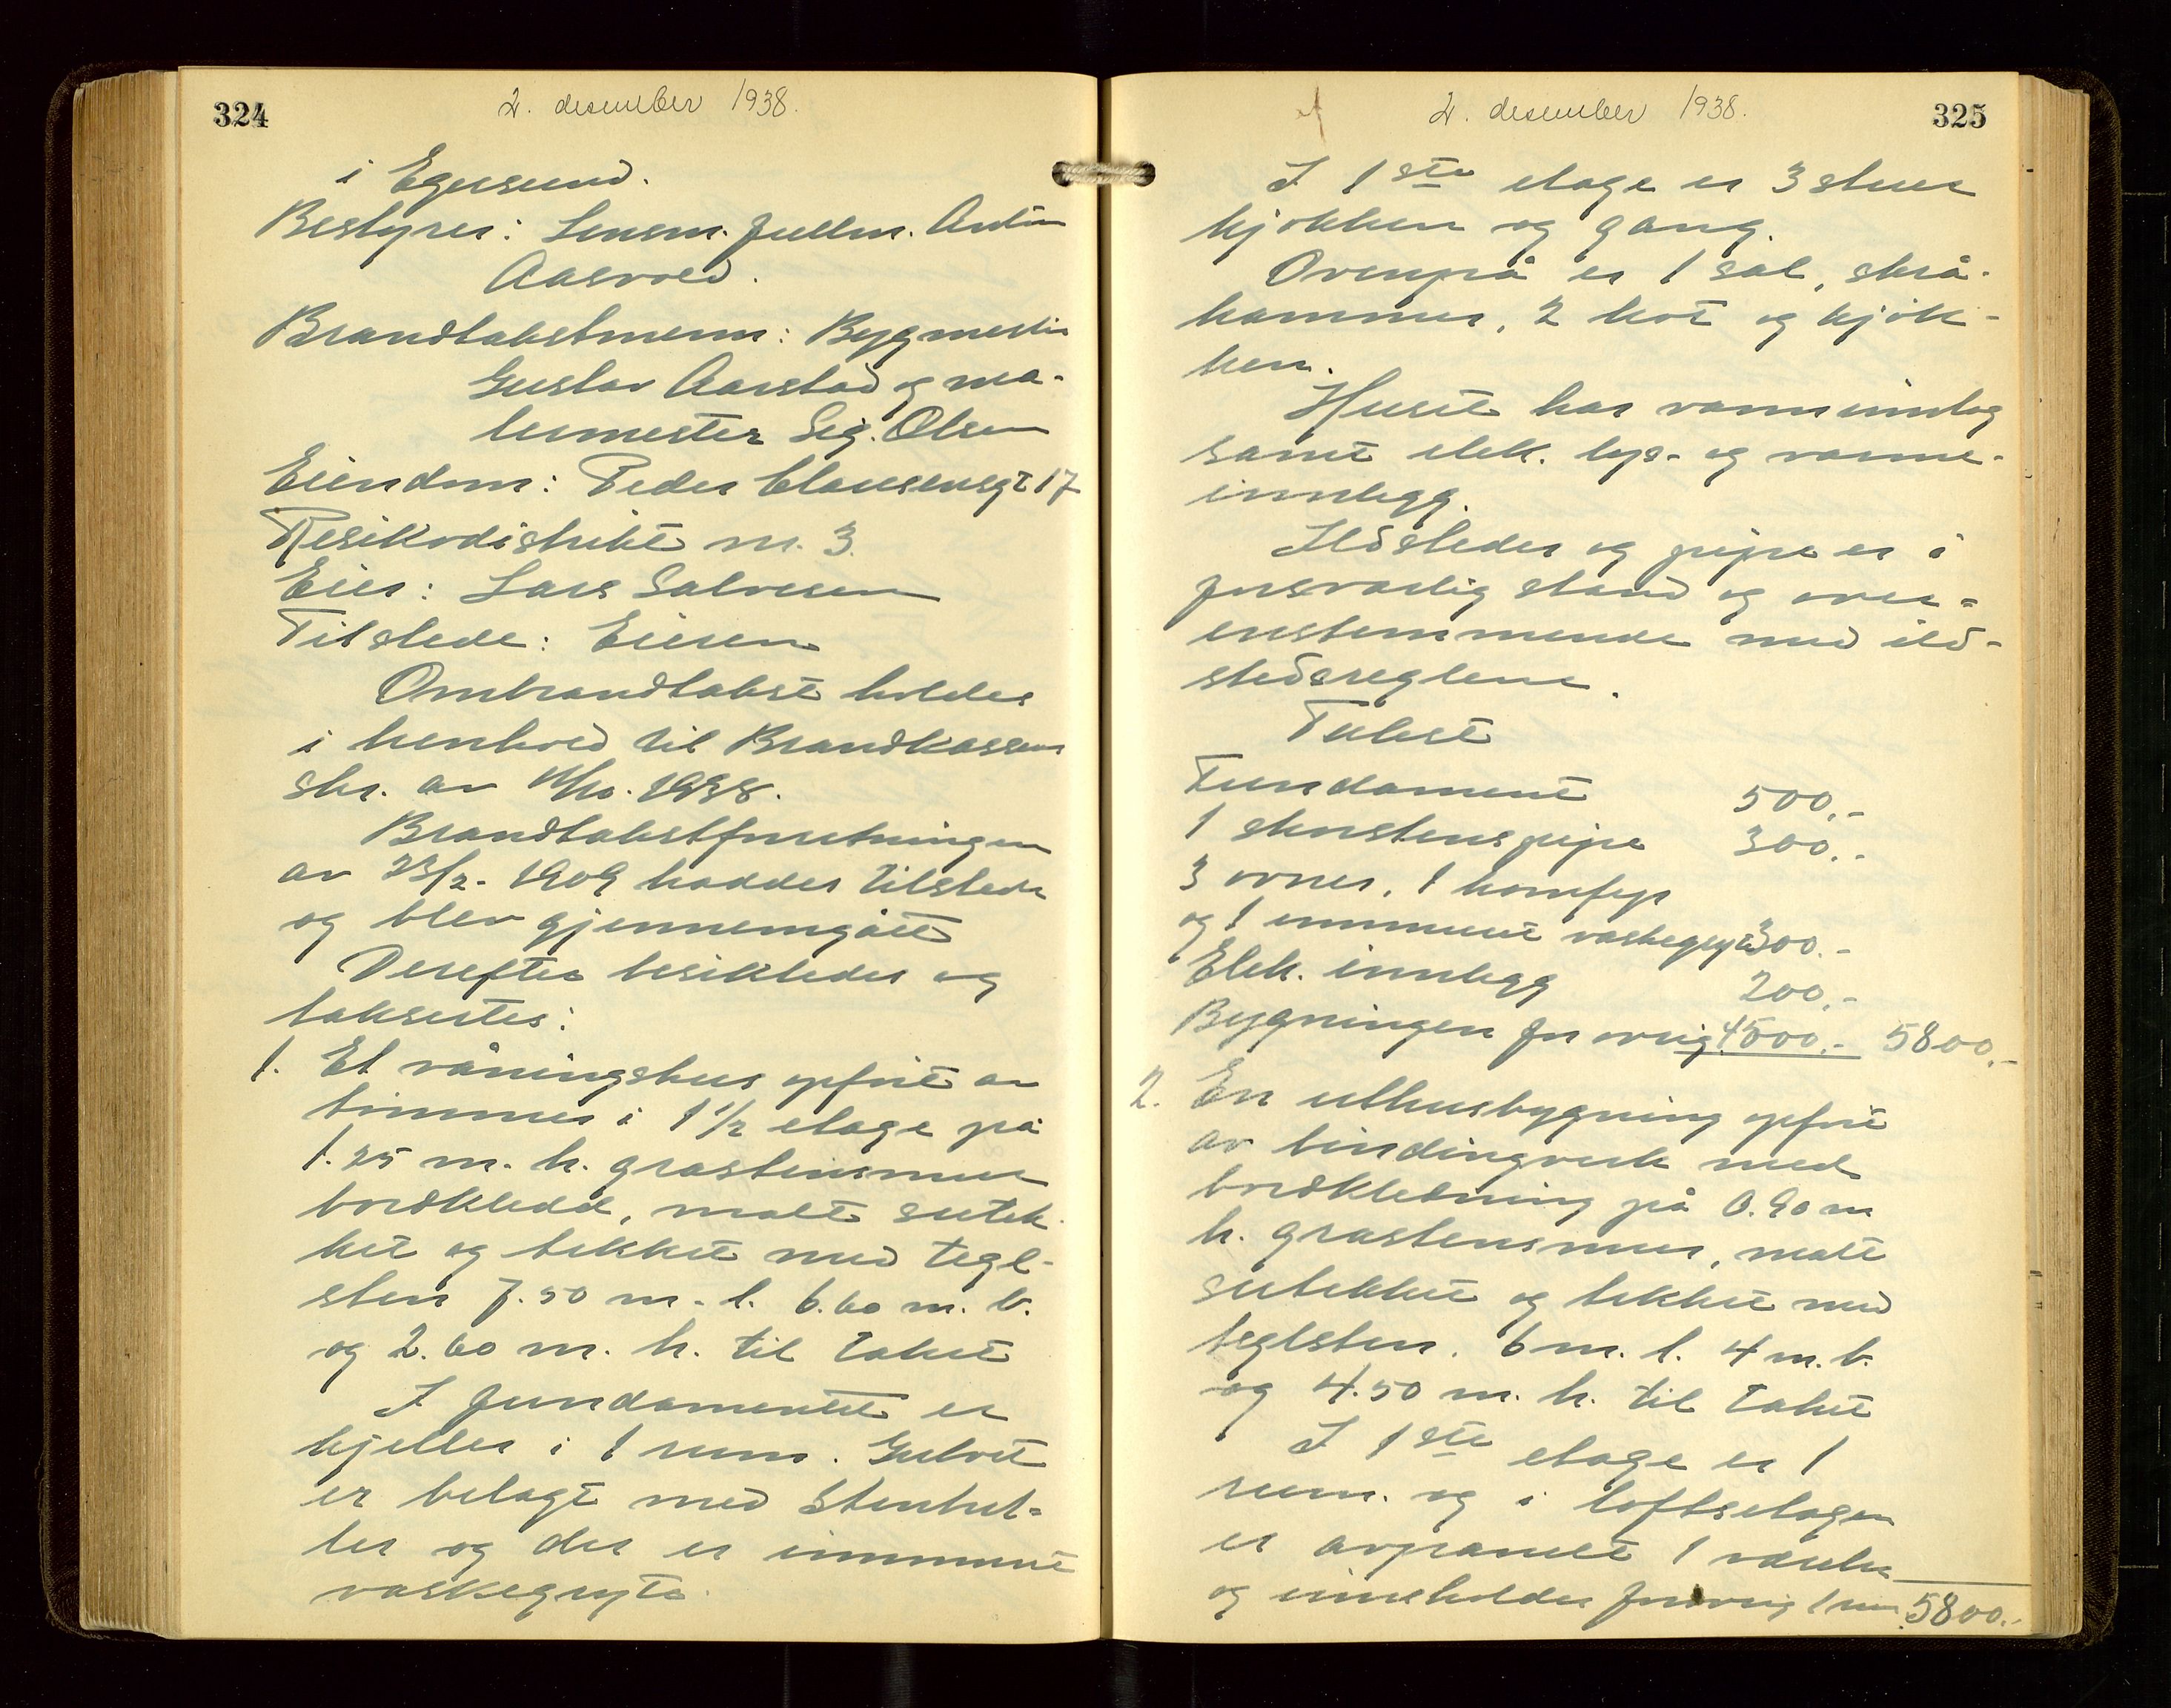 324
2. desember 1938.
i Egersund.
Bestyrer: Lensm. fullm. Anton
Aasvold.
Brandtakstmenn: Bygmester
Gustav Aarstad og ma-
lermester Sig. Olsen
Eiendom: Peder Clausensgt 17
Risikodistrikt nr. 3.
Eier: Lars Salvesen
Tilstede: Eieren
Ombrandtakst holdes
i henhold til Brandkassens
skr. av 11/10. 1938.
Brandtakstforretningen
av 23/2. 1909 haddes tilstede
og blev gjennemgått
Derefter besiktedes og
taksertes:
1. Et våningshus opført av
tømmer i 1 1/2 etage på
1.25 m. h. gråstensmur
bordkledd, malt sutek-
ket og tekket med tegl-
sten 7.50 m. l. 6.60 m. b.
og 2.60 m. h. til taket
I fundamentet er
kjeller i 1 rum. Gulvet
er belagt med Stenhel-
ler og der er innmurt
vaskegryte.
325
2. desember 1938.
I 1ste etage er 3 stuer
kjøkken og gang.
Ovenpå er 1 sal, skrå-
kammer, 2 kot og kjøk-
ken.
Huset har vanninnlegg
samt elek. lys- og varme-
innlegg.
Ildsteder og pipe er i
forsvarlig stand og over-
enstemmende med ild-
stedsreglene.
Takst
Fundament 500.-
1 skorstenspipe 300.-
3 ovner, 1 komfyr
og 1 innmurt vaskegryte 300.-
Elek. innlegg 200.-
Bygningen for øvrig 4500.- 5800.-
2. En uthusbygning opført
av bindingverk med
bordkledning på 0.90 m
h. gråstensmur, malt
sutekket og tekket med
teglsten. 6 m. l. 4 m. b.
og 4.50 m. h. til taket
I 1ste etage er 1
rum. og i loftsetagen
er avpanelt 1 værelse
og inneholder forøvrig 1 rum 5800.-